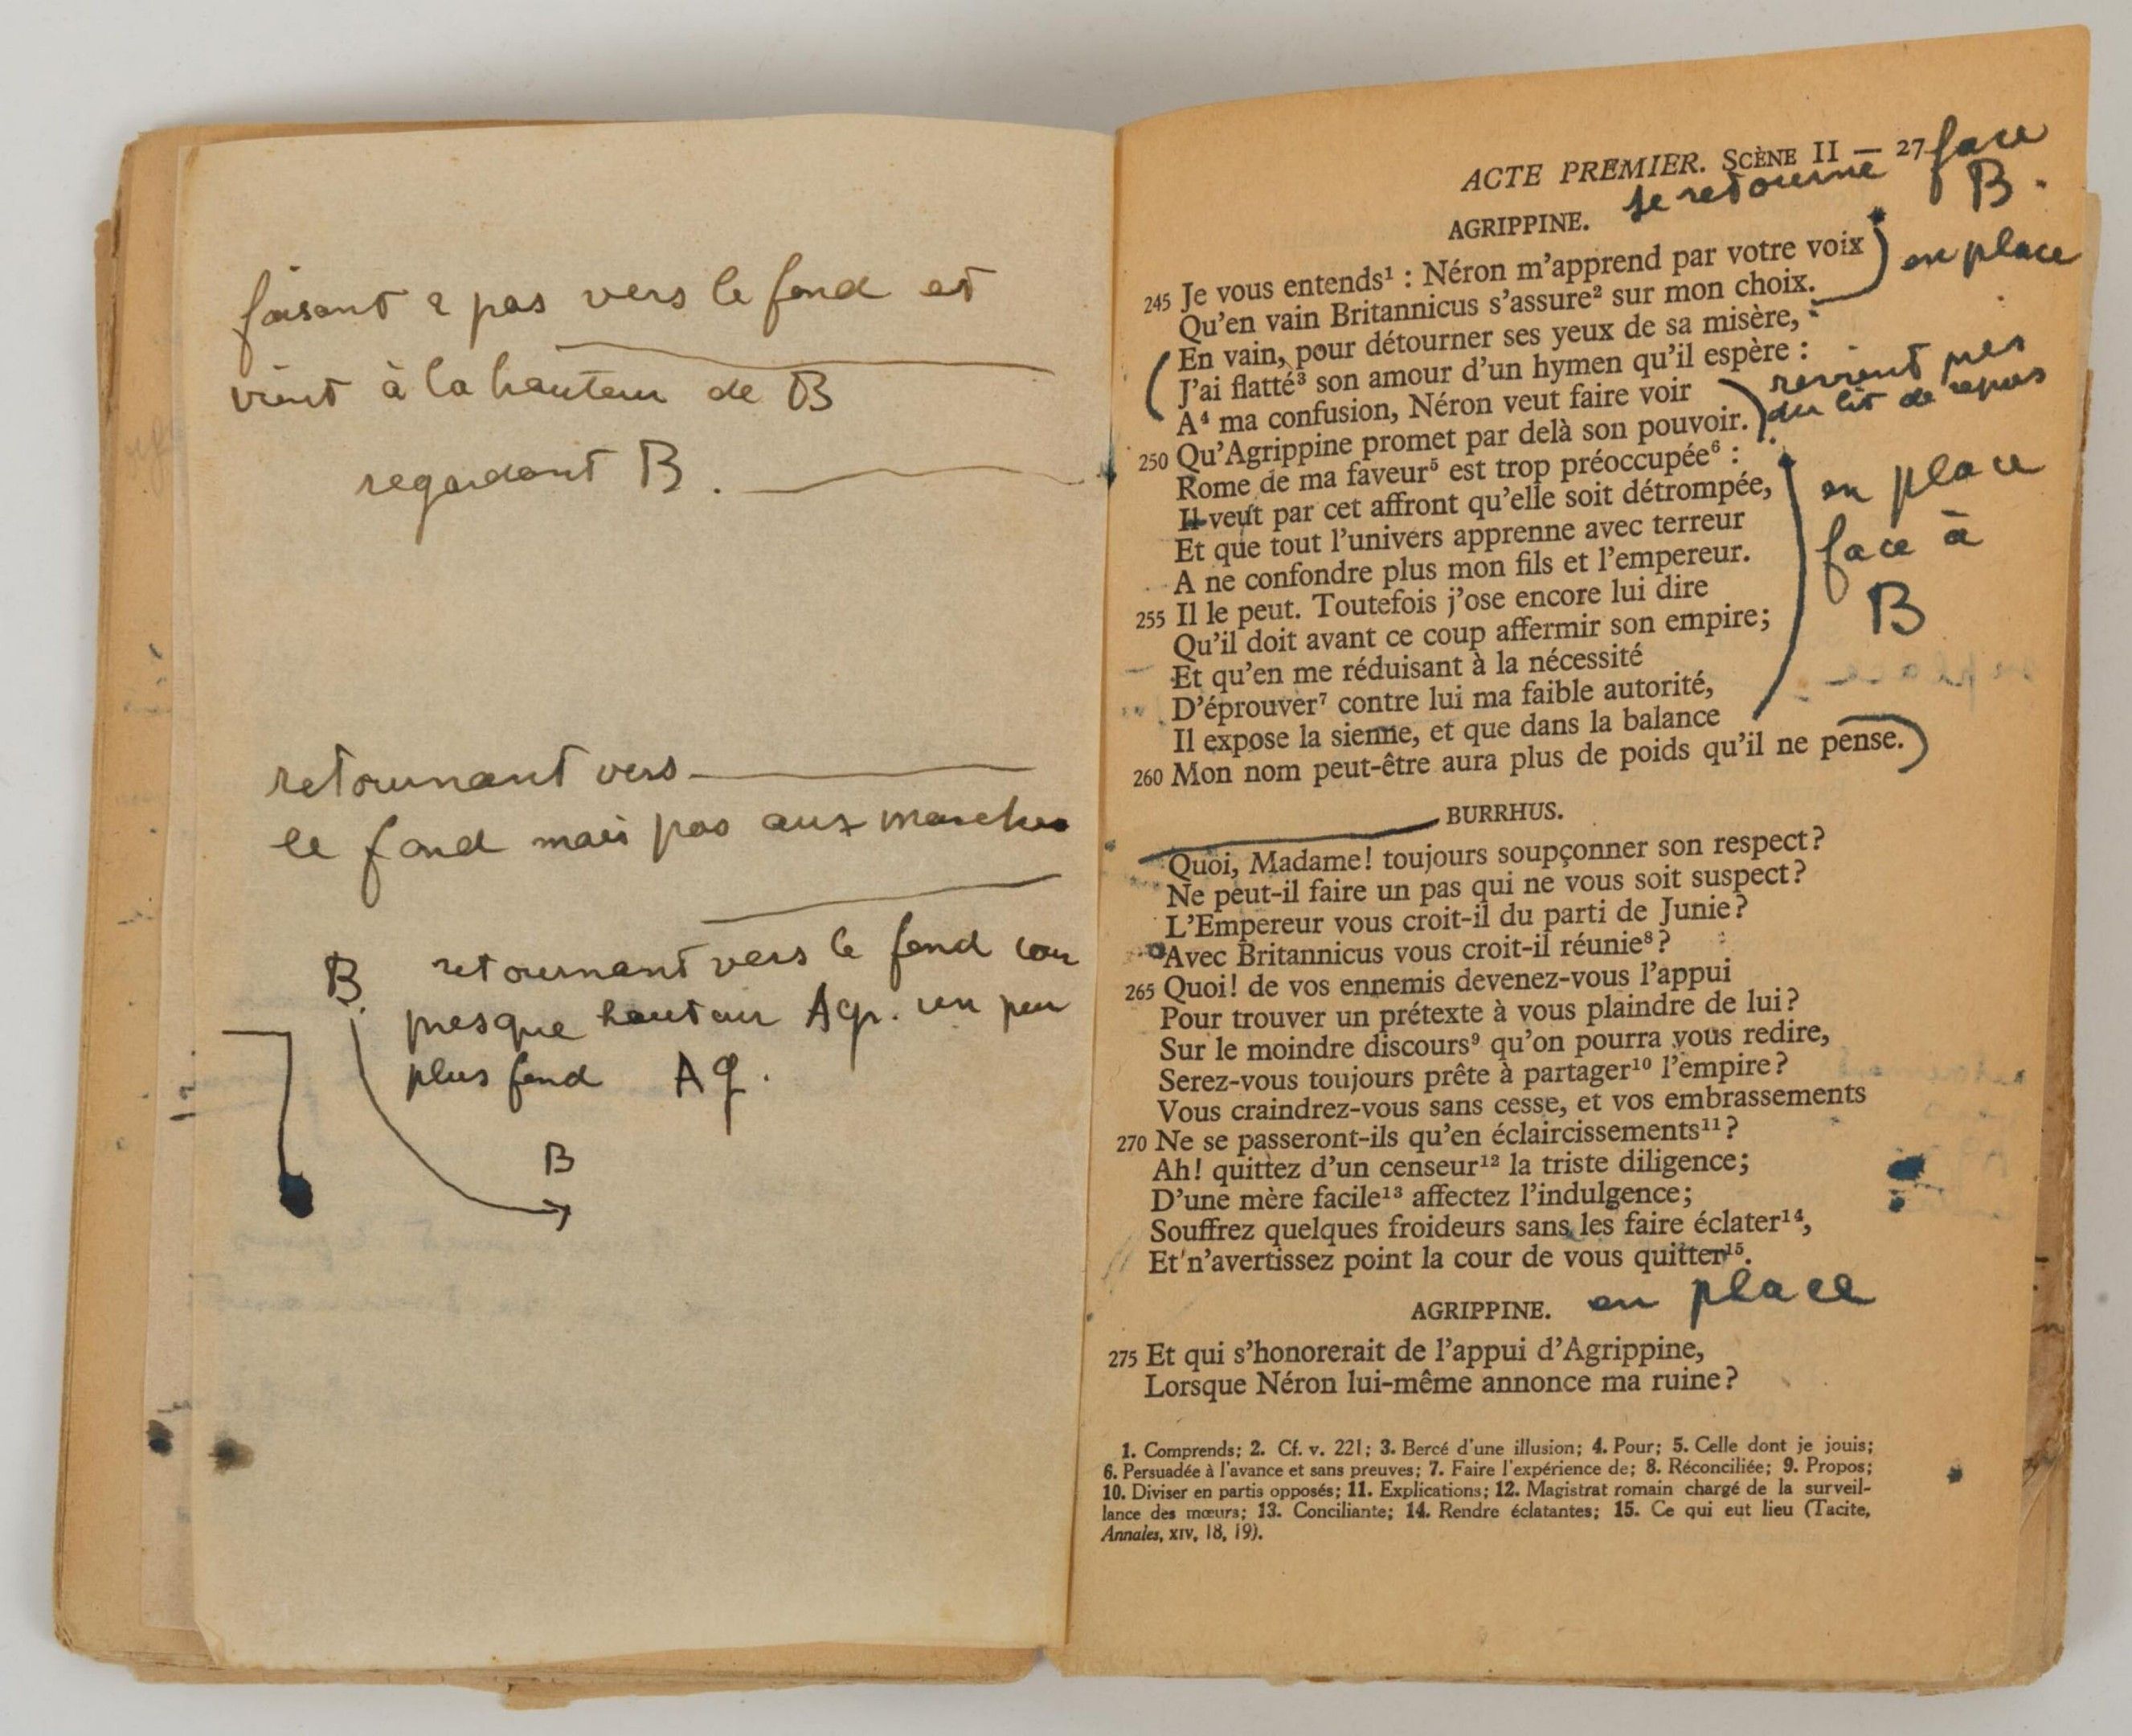 faisant 2 pas vers le fond et
vient à la hauteur de B
regardant B.
retournant vers
le fond mais pas aux marches
B. retournant vers le fond
presque hauteur Agr. un peu
plus fond Ag.
B
ACTE PREMIER. SCÈNE II — 27
face
B.
AGRIPPINE. se retourne
Je vous entends¹ : Néron m'apprend par votre voix
en place
245 Qu'en vain Britannicus s'assure² sur mon choix.
En vain, pour détourner ses yeux de sa misère,
J'ai flatté³ son amour d'un hymen qu'il espère :
A⁴ ma confusion, Néron veut faire voir
revient près
du lit de repos
Qu'Agrippine promet par delà son pouvoir.
250 Rome de ma faveur⁵ est trop préoccupée⁶ :
Il veut par cet affront qu'elle soit détrompée,
en place
face à
B
Et que tout l'univers apprenne avec terreur
A ne confondre plus mon fils et l'empereur.
Il le peut. Toutefois j'ose encore lui dire
255 Qu'il doit avant ce coup affermir son empire;
Et qu'en me réduisant à la nécessité
D'éprouver⁷ contre lui ma faible autorité,
Il expose la sienne, et que dans la balance
260 Mon nom peut-être aura plus de poids qu'il ne pense.
BURRHUS.
Quoi, Madame! toujours soupçonner son respect?
Ne peut-il faire un pas qui ne vous soit suspect?
L'Empereur vous croit-il du parti de Junie?
Avec Britannicus vous croit-il réunie⁸?
265 Quoi! de vos ennemis devenez-vous l'appui
Pour trouver un prétexte à vous plaindre de lui?
Sur le moindre discours⁹ qu'on pourra vous redire,
Serez-vous toujours prête à partager¹⁰ l'empire?
Vous craindrez-vous sans cesse, et vos embrassements
270 Ne se passeront-ils qu'en éclaircissements¹¹?
Ah! quittez d'un censeur¹² la triste diligence;
D'une mère facile¹³ affectez l'indulgence;
Souffrez quelques froideurs sans les faire éclater¹⁴,
Et n'avertissez point la cour de vous quitter¹⁵.
AGRIPPINE. en place
275 Et qui s'honorerait de l'appui d'Agrippine,
Lorsque Néron lui-même annonce ma ruine?
1. Comprends; 2. Cf. v. 221; 3. Bercé d'une illusion; 4. Pour; 5. Celle dont je jouis;
6. Persuadée à l'avance et sans preuves; 7. Faire l'expérience de; 8. Réconciliée; 9. Propos;
10. Diviser en partis opposés; 11. Explications; 12. Magistrat romain chargé de la surveil-
lance des mœurs; 13. Conciliante; 14. Rendre éclatantes; 15. Ce qui eut lieu (Tacite,
Annales, XIV, 18, 19).